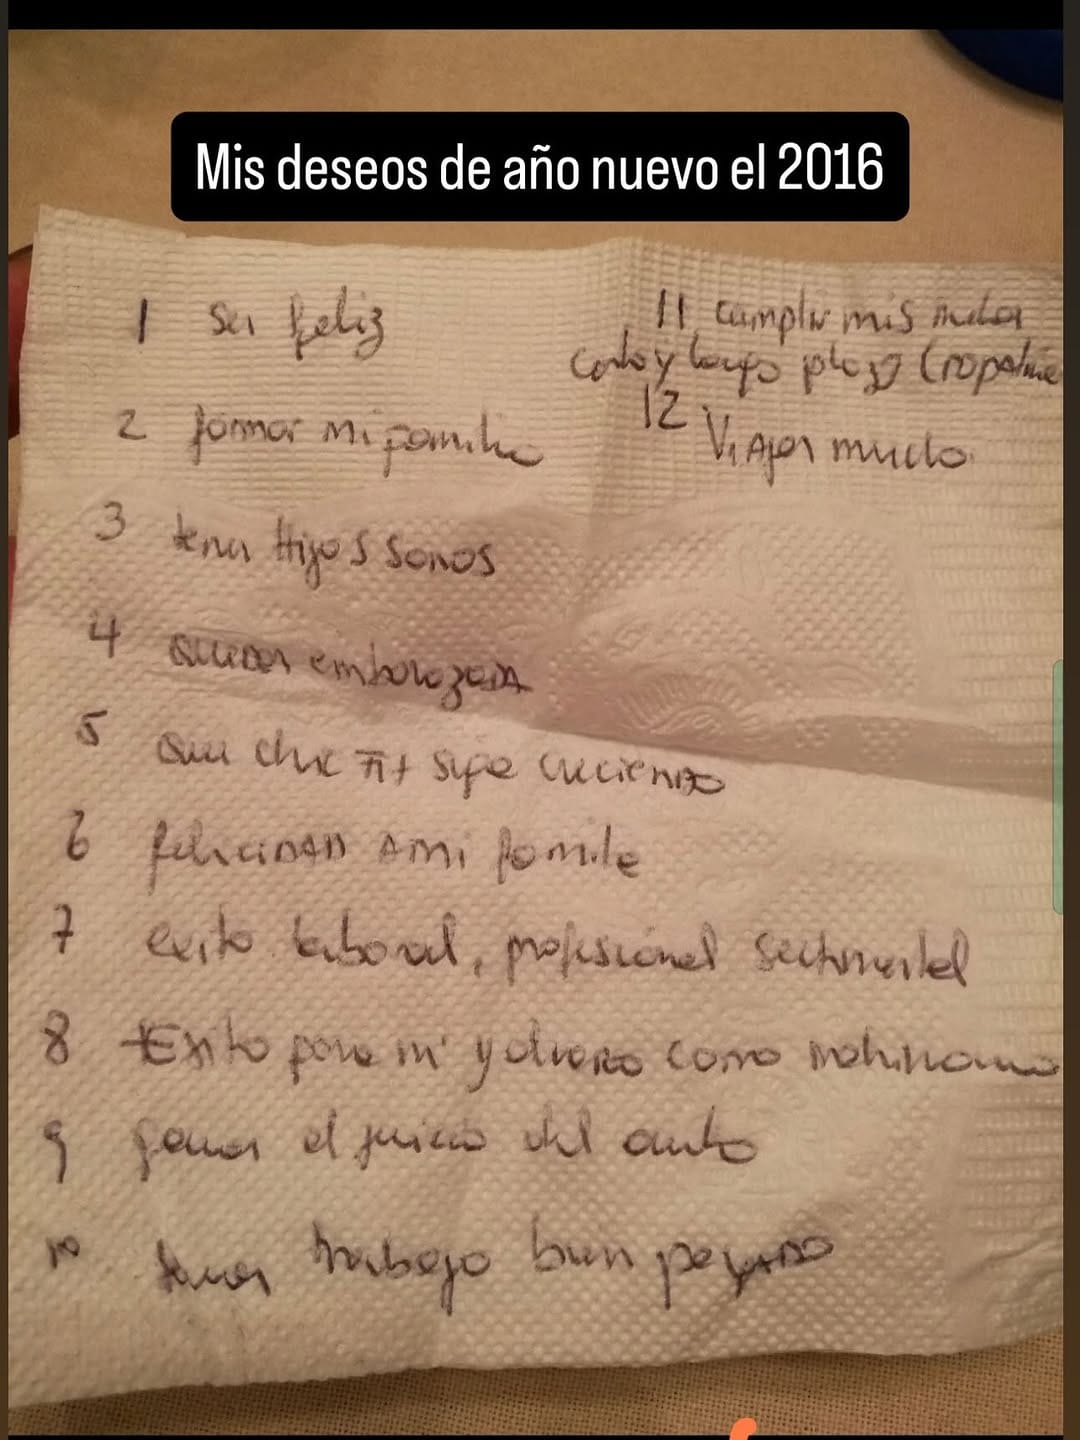 Mis deseos de año nuevo el 2016
1 Ser feliz
2 formar mi familia
3 tener Hijos sanos
4 QUEDAR embarazada
5 Que chic Fit siga creciendo
6 felicidad a mi familia
7 exito laboral, profesional sectimental
8 Exito para mi y alvaro como matrimonio
9 ganar el juicio del auto
10 tener trabajo bien pagado
11 cumplir mis metas
corto y largo plazo
12 Viajar mucho